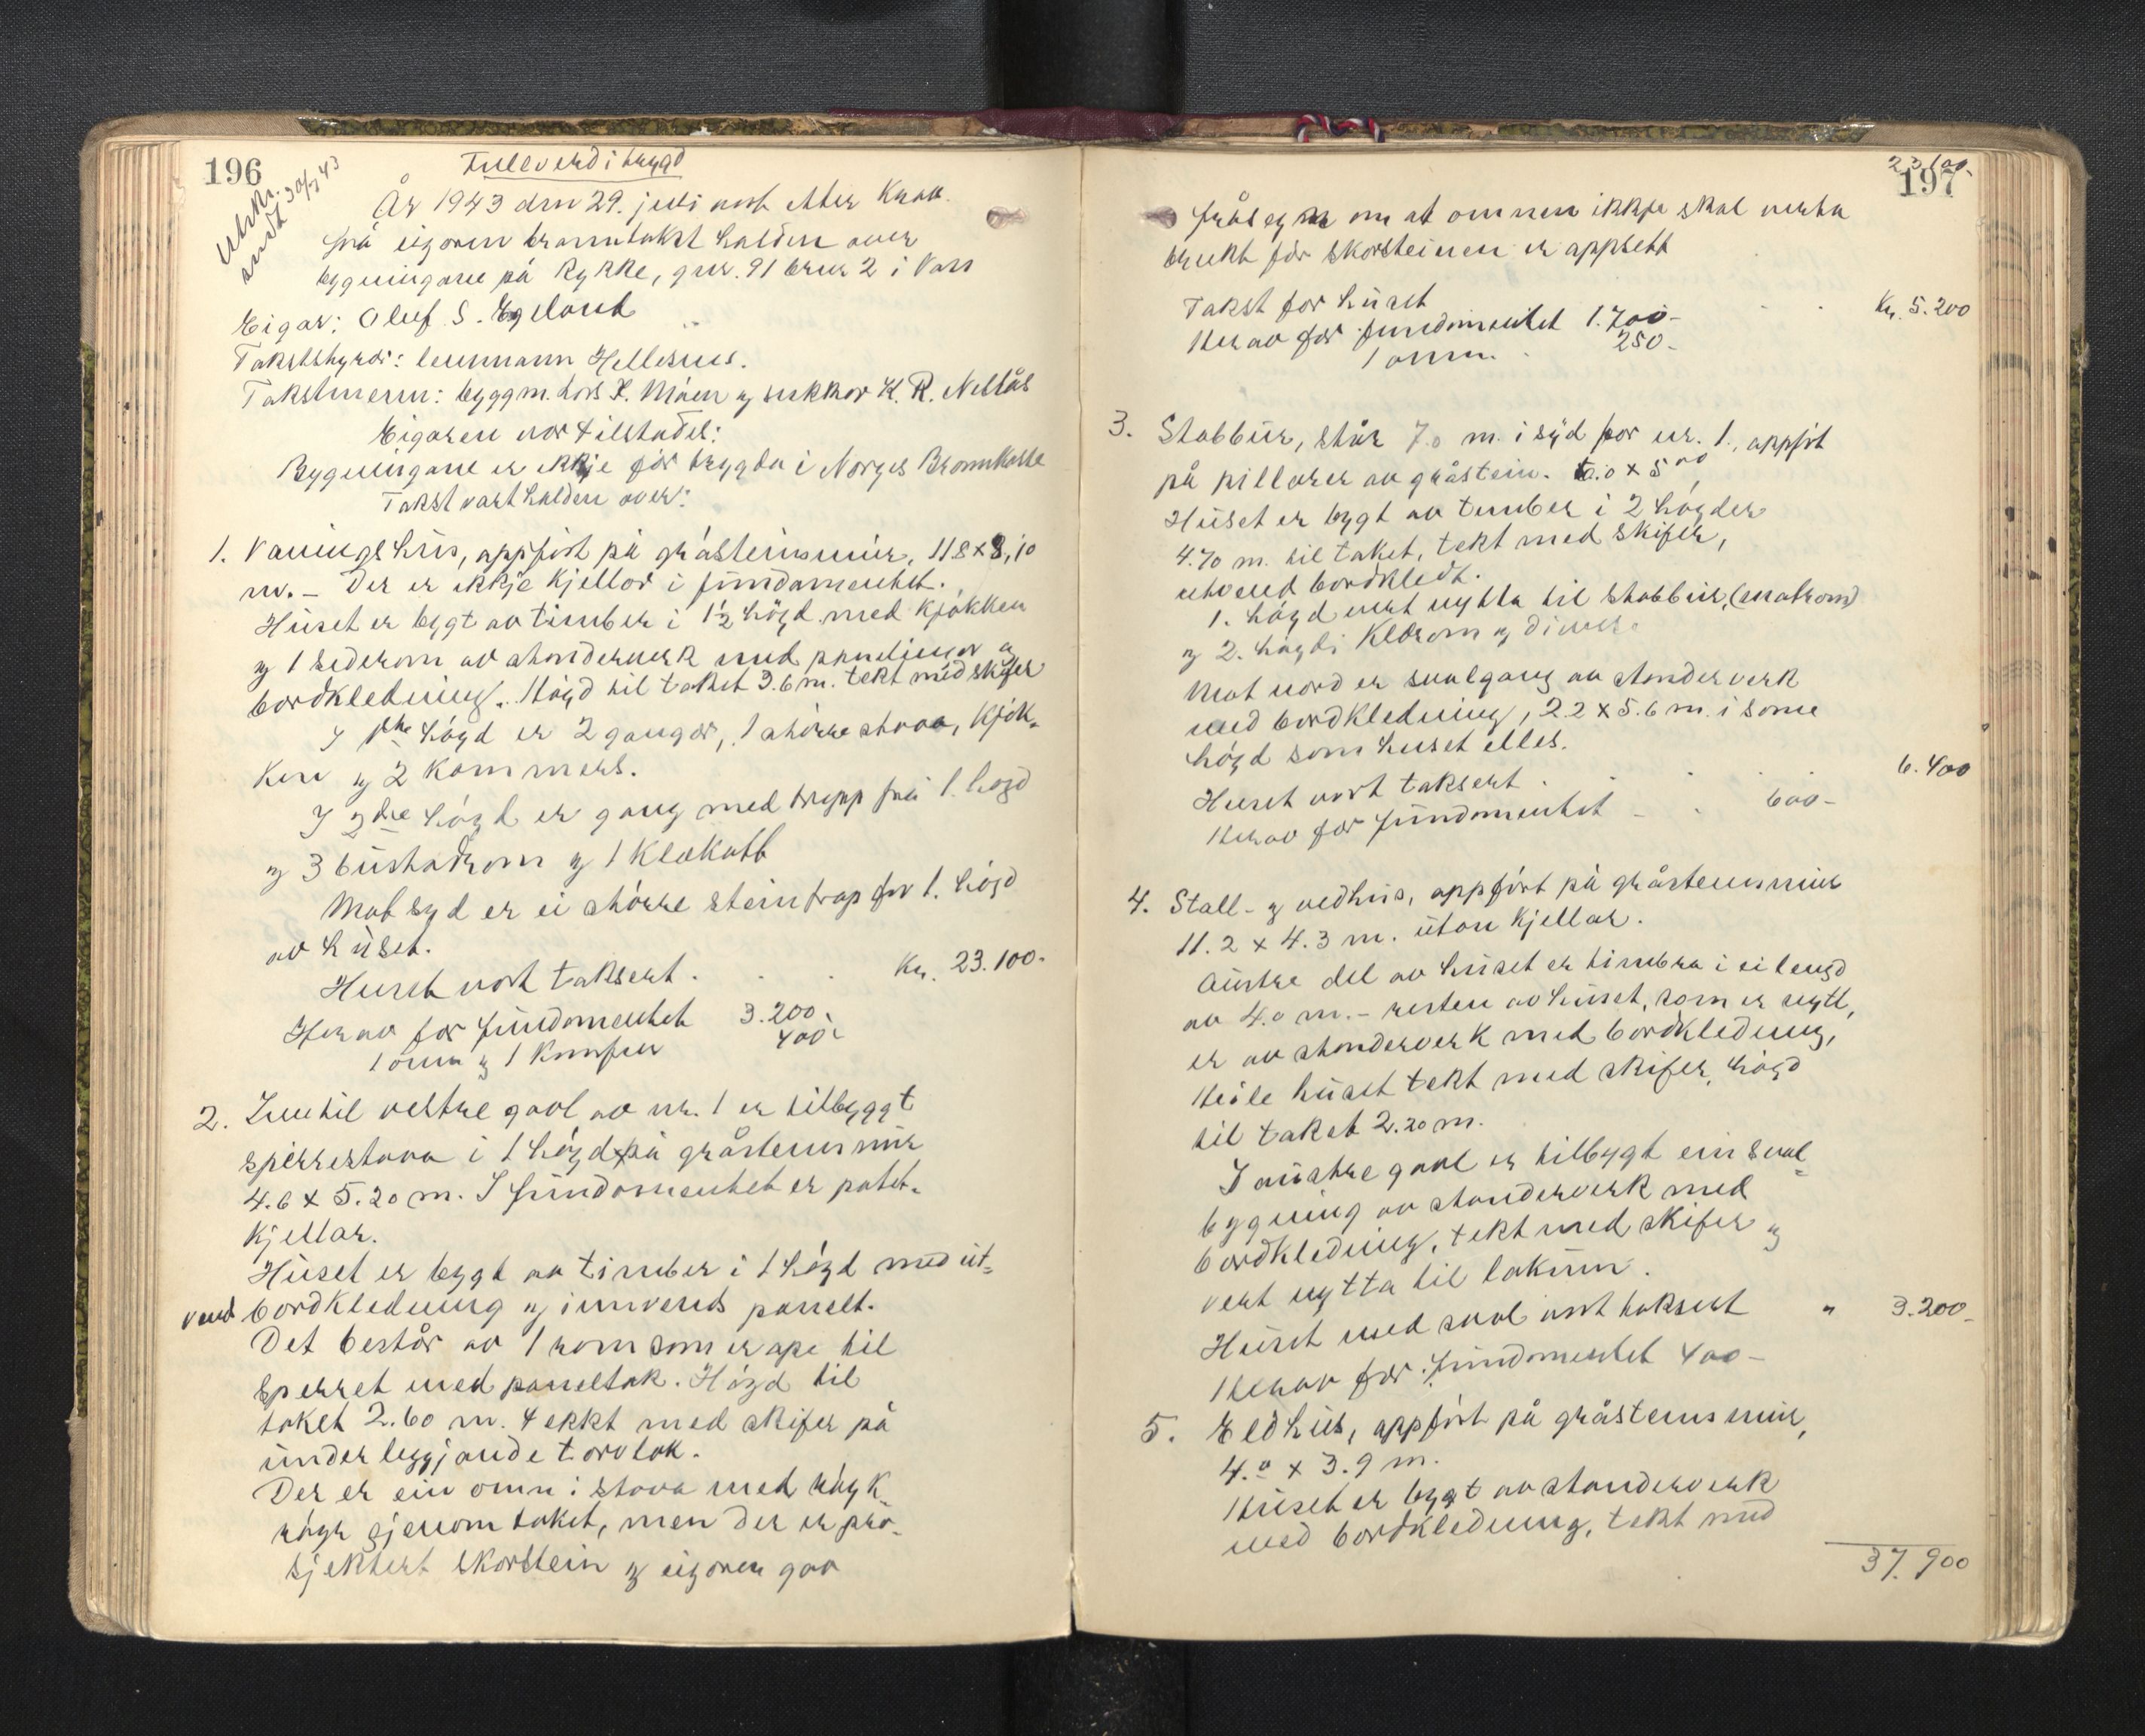 196
Fullverdi trygd
Utskr.
sendt 30/7 43
År 1943 den 29. juli vart etter Krav
frå eigaren branntakst halden over
bygningane på Rykke, gnr. 91 bnr 2 i Voss
Eigar: Oluf S. Egeland
Takststyrar: lensmann Hellesnes.
Takstmenn: byggm. Lars K. Måen og snikkar K. R. Nestås
Eigaren var tilstades:
Bygningane er ikkje før trygda i Norges Brannkasse
Takst vart halden over:
1. Vaningshus, oppført på gråsteinsmur, 11.8 x 8,10
m. – Der er ikkje kjellar i fundamentet.
Huset er bygt av timber i 1½ høgd med kjøkken
og 1 sederom av standerverk med panelingar og
bordkledning. Høgd til taket 3.6 m. tekt med skifer
I 1ste høgd er 2 gangar, 1 større stova, Kjøk-
ken og 2 kammers.
I 2dre høgd er gang med trapp frå 1. høgd
og 3 bustadrom og 1 klekott
Mot syd er ei større steintrap for 1. høgd
av huset.
Huset vart taksert. Kr. 23.100.
Herav for fundamentet 3.200.
1 omn og 1 komfur 400.
2. Inntil vestre gavl av nr. 1 er tilbyggt
sperrestova i 1 høgd på gråsteinsmur
4.6 x 5.20 m. I fundamentet er potet-
kjellar.
Huset er bygt av timber i 1 høgd med ut-
vend bordkledning og innvends panelt.
Det består av 1 rom som er ope til
sperret med paneltak. Høgd til
taket 2.60 m. tekkt med skifer på
underleggjande torvtak.
Der er ein omn i stova med røyk-
røyr gjenom taket, men der er pro-
sjektert skorstein og eigaren gav
23.100.
197
fråsegn om at omnen ikkje skal verta
brukt før skorsteinen er oppsett
Takst for huset Kr. 5.200
Herav for fundamentet 1.700-
1 omn. 250-
3. Stabbur, står 7.0 m. i syd for nr. 1., oppført
på pillarer av gråstein. 6.0 x 5.00,
Huset er bygt av tember i 2 høgder
4.70 m. til taket, tekt med skifer,
utvend bordkledt.
1. høgd vert nytta til stabbur, (matrom)
og 2. høgdi klærom og diverse
Mot nord er svalgang av standerverk
med bordkledning, 2.2 x 5.6 m. i same
høgd som huset elles.
Huset vart taksert 6.400
Herav for fundamentet 600-
4. Stall- og vedhus, oppført på gråsteinsmur
11.2 x 4.3 m. utan kjellar.
Austre del av huset er timbra i ei lengd
av 4.0 m. – resten av huset, som er nytt,
er av standerverk med bordkledning,
Heile huset tekt med skifer, høgd
til taket 2.20 m.
I austre gavl er tilbygt ein sval-
bygning av standerverk med
bordkledning, tekt med skifer og
vert nytta til lokum.
Huset med sval vart taksert " 3.200-
Herav for fundamentet 400-
5. Eldhus, oppført på gråsteinsmur,
4.0 x 3.9 m.
Huset er bygt av standerverk
med bordkledning, tekt med
37.900